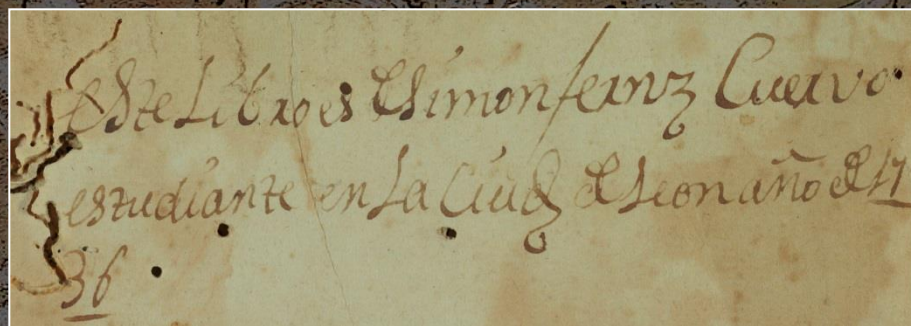 este Libro es de simon fernz Cuervo
estudiante en La Ciud de Leon año de 17
36